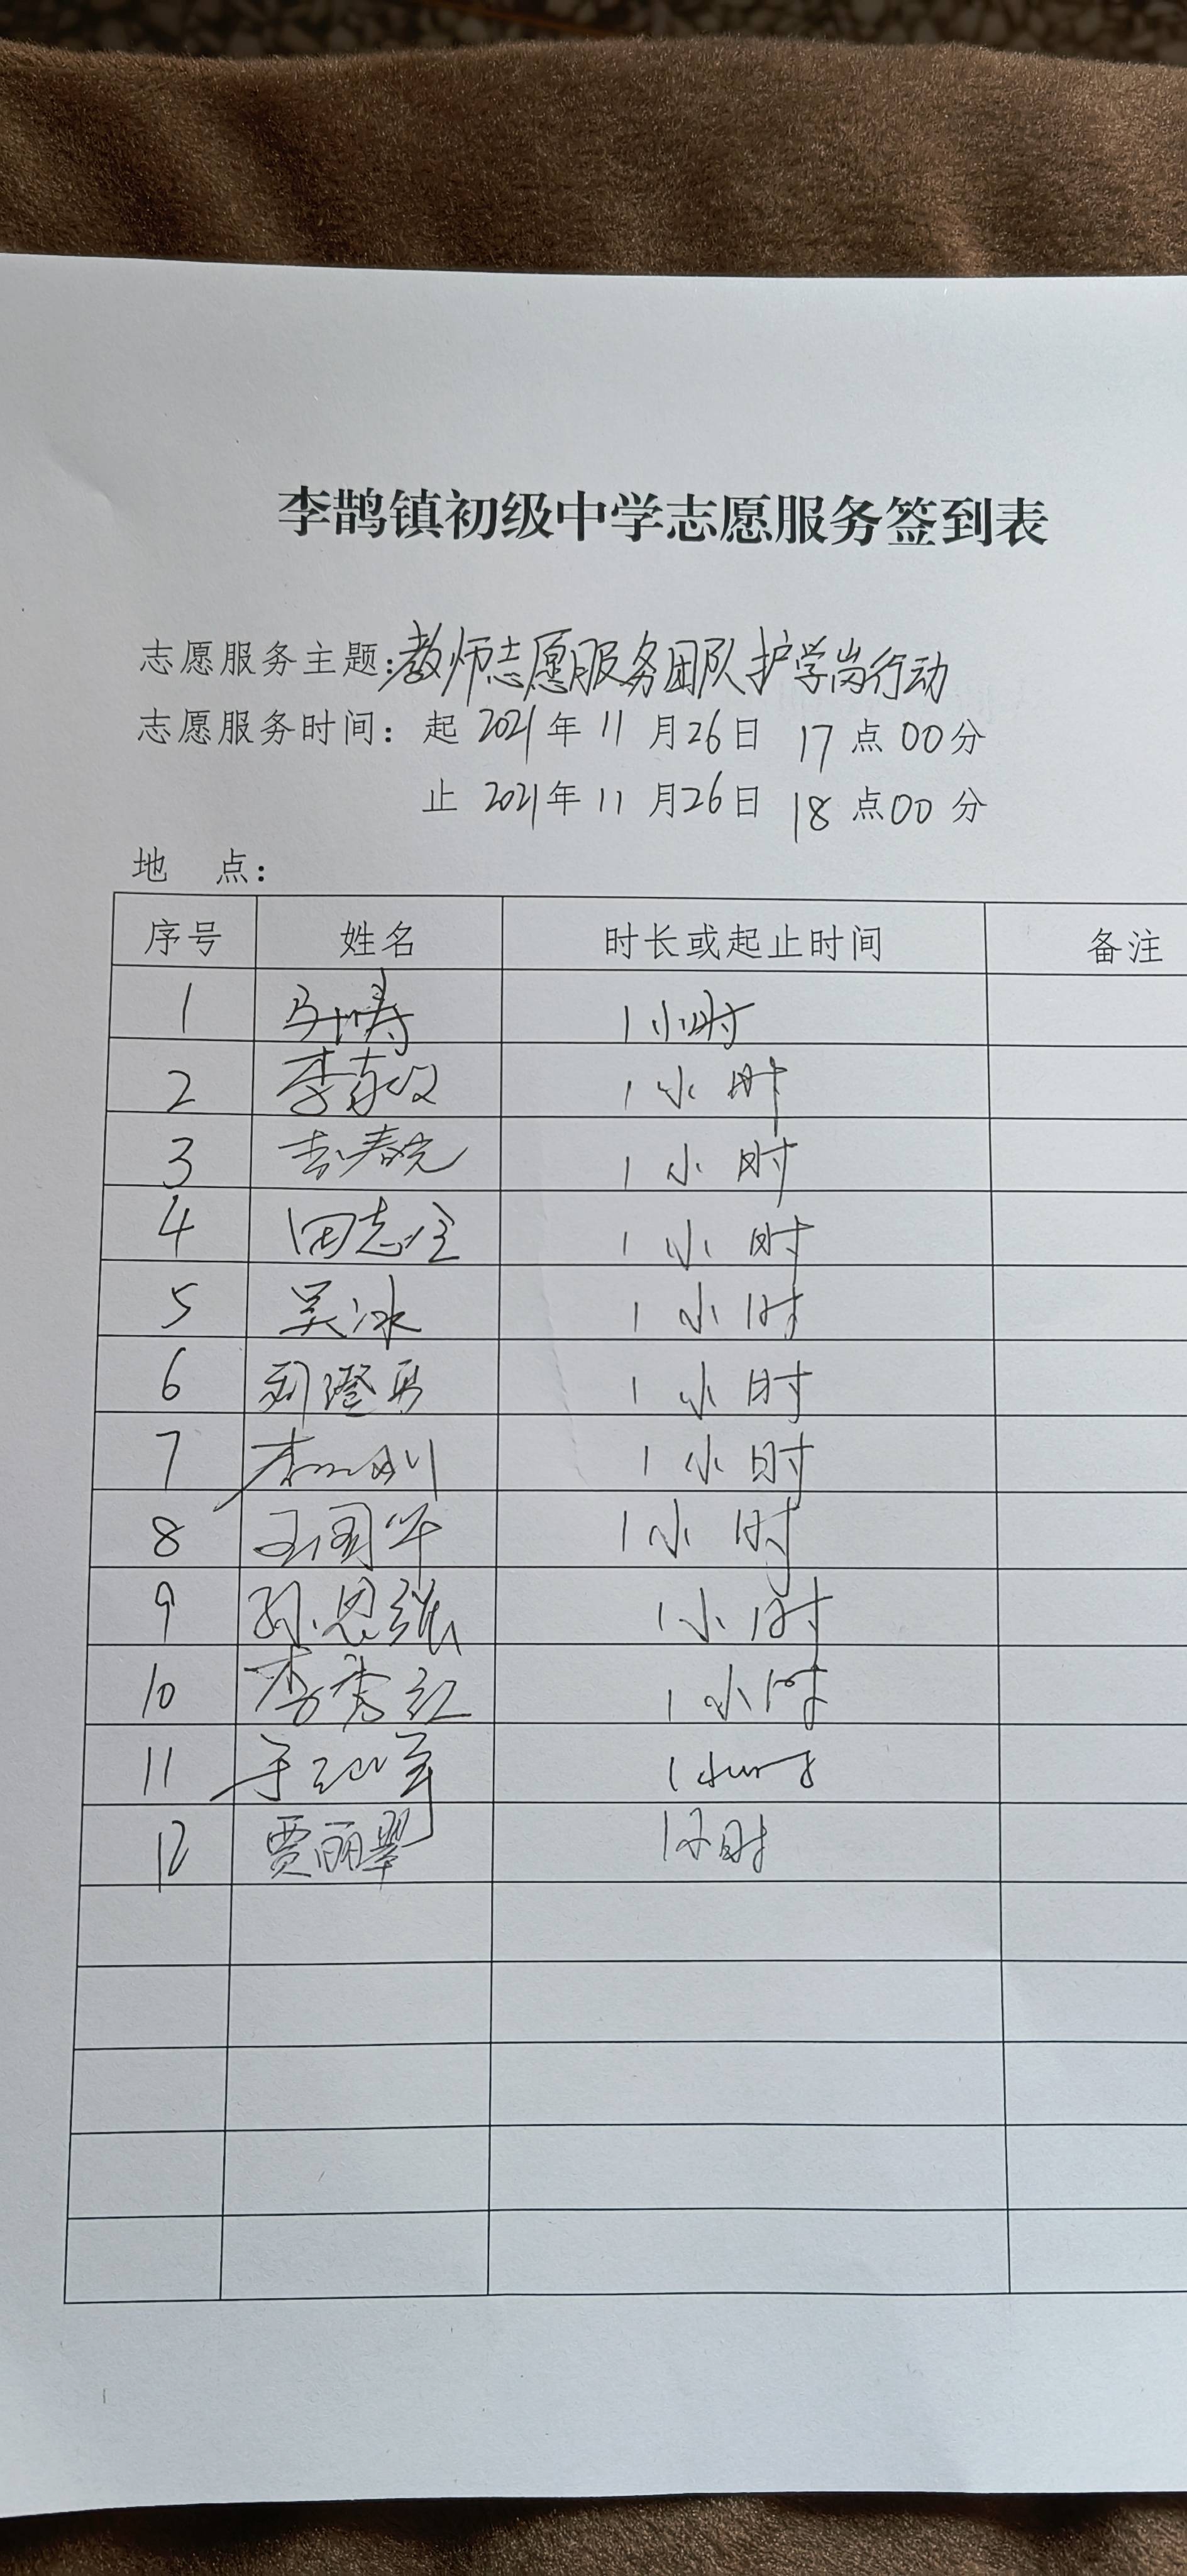 李鹊镇初级中学志愿服务签到表
志愿服务主题:教师志愿服务团队护学岗行动
志愿服务时间: 起 2021年 11 月 26日 17 点 00分
止 2021年 11 月 26日 18 点 00 分
地 点:
序号 姓名 时长或起止时间 备注
1 1小时
2 1小时
3 1小时
4 田志 1小时
5 吴冰 1小时
6 1小时
7 1小时
8 王国华 1小时
9 孙恩 1小时
10 李秀红 1小时
11 1小时
12 贾丽翠 1小时